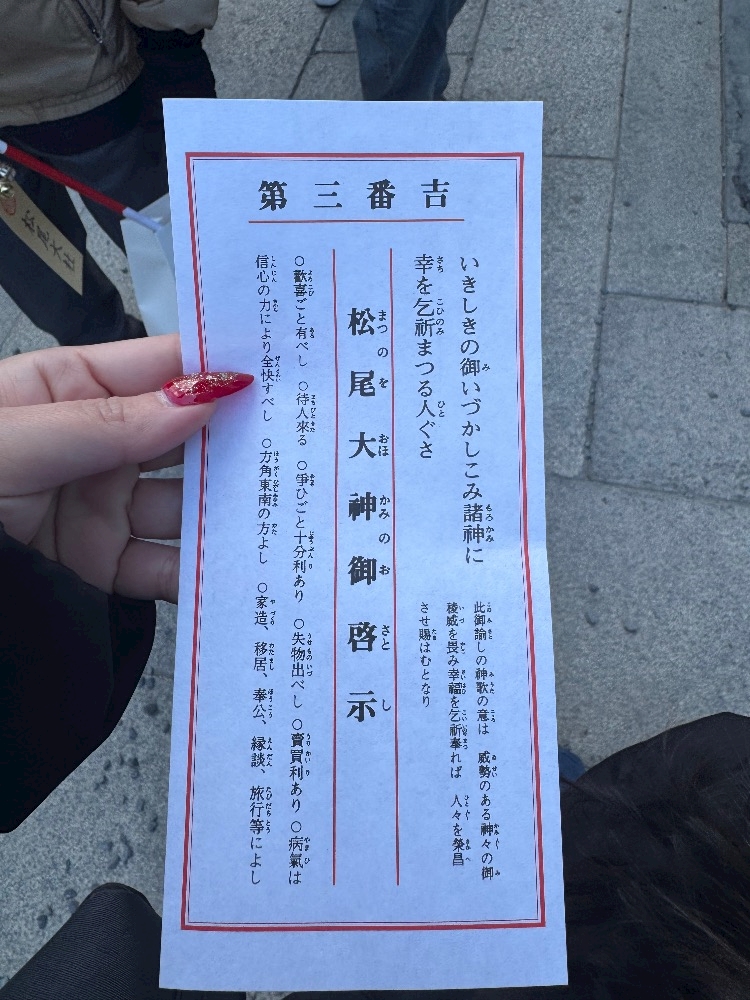 第三番吉
いきしきの御いづかしこみ諸神に
幸を乞祈まつる人ぐさ
此御諭しの神歌の意は　威勢のある神々の御
稜威を畏み幸福を乞祈奉れば　人々を榮昌
させ賜はむとなり
松尾大神御啓示
○歡喜ごと有べし ○待人來る ○爭ひごと十分利あり ○失物出べし ○賣買利あり ○病氣は
信心の力により全快すべし ○方角東南の方よし ○家造、移居、奉公、縁談、旅行等によし
松尾大社